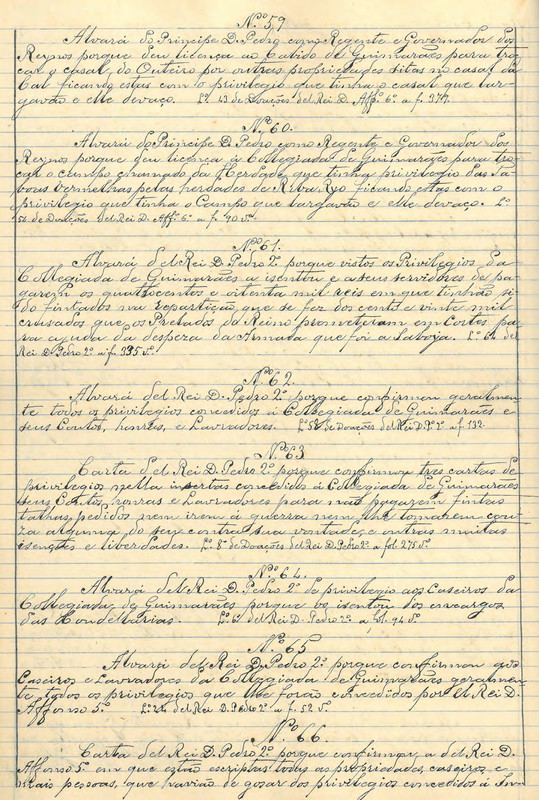 Nº 59
Alvará do Principe D. Pedro como Regente e Governador dos
Reynos porque deu licença ao Cabido de Guimarães para tro-
car o casal do Outeiro por outras propriedades sitas no casal da
Cal ficando estas com o privilegio que tinha o casal que lar-
gavão e elle devaço. Lº 43 de Doações del Rei D. Affº 6º a f. 377.
Nº 60.
Alvará do Principe D. Pedro como Regente e Governador dos
Reynos porque deu licença á Collegiada de Guimarães para tro-
car o campo chamado da Herdade que tinha privilegio das Ta-
boas Vermelhas pelas herdades de Riba Ryo ficando estas com o
privilegio que tinha o Campo que largavão e elle devaço. Lº
54 de Doações del Rei D. Affº 6º a f. 90 vº
Nº 61.
Alvará del Rei D. Pedro 2º porque vistos os Privilegios da
Collegiada de Guimarães a isentou e a seus servidores de pa-
garem os quattrocentos e oitenta mil reis em que tinhão si-
do fintados na repartição que se fez dos cento e vinte mil
crusados que os Prelados do Reino prometeram em Cortes pa-
ra ajuda da despeza da Armada que foi a Saboja. Lº 64 del
Rei D. Pedro 2º a f. 335 vº
Nº 62.
Alvará del Rei D. Pedro 2º porque confirmou geralmen-
te todos os privilegios concedidos á Collegiada de Guimarães e
seus Coutos, honras, e Lavradores. Lº 58 de Doações del Rei D. Pº 2º a f. 132.
Nº 63
Carta del Rei D. Pedro 2º porque confirmou tres cartas de
privilegios nella insertas concedidos á Collegiada de Guimarães
seus Coutos, honras e Lavradores para não pagarem fintas
talhas, pedidos nem irem á guerra nem lhe tomarem cou-
za alguma do seu contra sua vontade, e outras muitas
isenções e liberdades. Lº 8º de Doações del Rei D. Pedro 2º a fol. 275 vº
Nº 64.
Alvará del Rei D. Pedro 2º de privilegio aos Caseiros da
Collegiada de Guimarães porque os isentou dos encargos
das Condelarias. Lº 61 del Rei D. Pedro 2º a fol. 94 vº
Nº 65
Alvará del Rei D. Pedro 2º porque confirmou aos
Caseiros e Lavradores da Collegiada de Guimarães geralmen-
te todos os privilegios que lhe forão concedidos por El Rei D.
Affonso 5º Lº 44 del Rei D. Pedro 2º a fol. 52 vº
Nº 66.
Carta del Rei D. Pedro 2º porque confirmou a del Rei D.
Affonso 5º em que estão escriptas todas as propriedades, caseiros, e
mais pessoas, que havião de gosar dos privilegios concedidos á In-